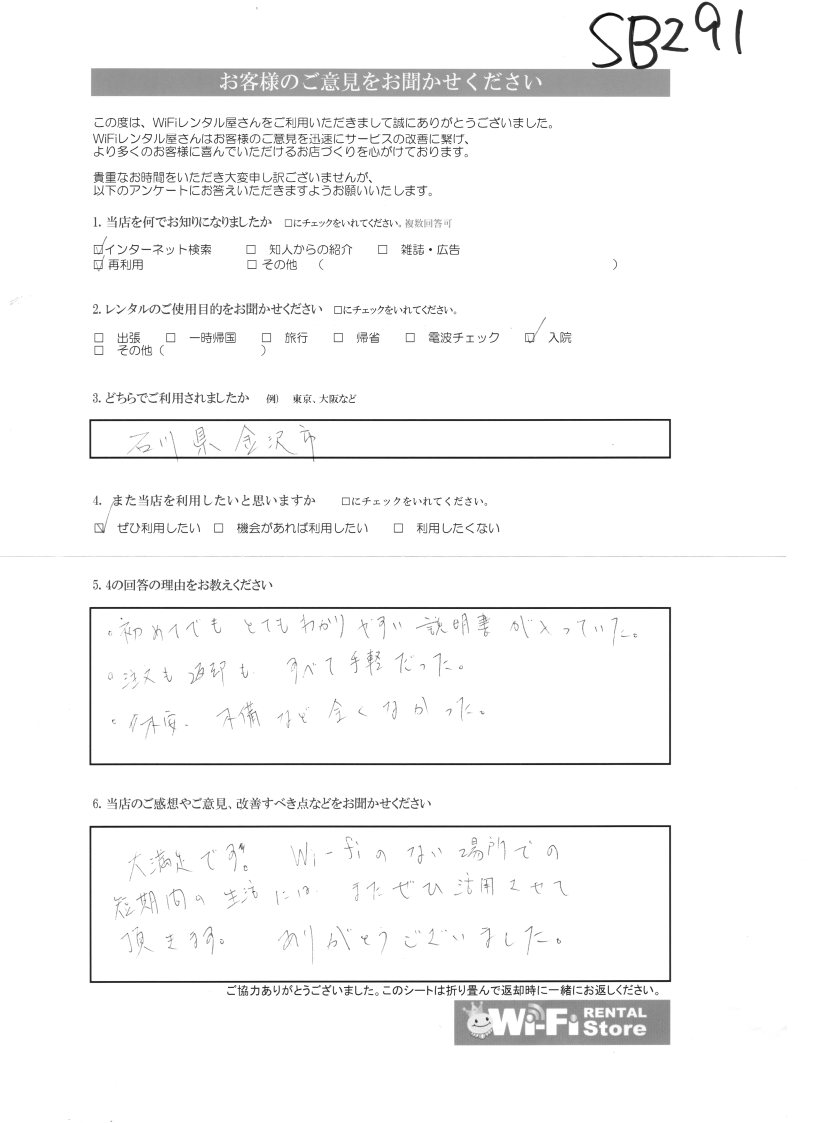 SB291
お客様のご意見をお聞かせください
この度は、WiFiレンタル屋さんをご利用いただきまして誠にありがとうございました。
WiFiレンタル屋さんはお客様のご意見を迅速にサービスの改善に繋げ、
より多くのお客様に喜んでいただけるお店づくりを心がけております。
貴重なお時間をいただき大変申し訳ございませんが、
以下のアンケートにお答えいただきますようお願いいたします。
1. 当店を何でお知りになりましたか □にチェックをいれてください。複数回答可
☑インターネット検索 □ 知人からの紹介 □ 雑誌・広告
☑再利用 □ その他 ( )
2. レンタルのご使用目的をお聞かせください □にチェックをいれてください。
□ 出張 □ 一時帰国 □ 旅行 □ 帰省 □ 電波チェック ☑ 入院
□ その他 ( )
3. どちらでご利用されましたか 例) 東京、大阪など
石川県金沢市
4. また当店を利用したいと思いますか □にチェックをいれてください。
☑ ぜひ利用したい □ 機会があれば利用したい □ 利用したくない
5. 4の回答の理由をお教えください
・初めてでもとてもわかりやすい説明書が入っていた。
・注文も返却も、すべて手軽だった。
・不備など全くなかった。
6. 当店のご感想やご意見、改善すべき点などをお聞かせください
大満足です。 Wi-fiのない場所での
短期間の生活には、またぜひ活用させて
頂きます。 ありがとうございました。
ご協力ありがとうございました。このシートは折り畳んで返却時に一緒にお返しください。
Wi-Fi RENTAL Store